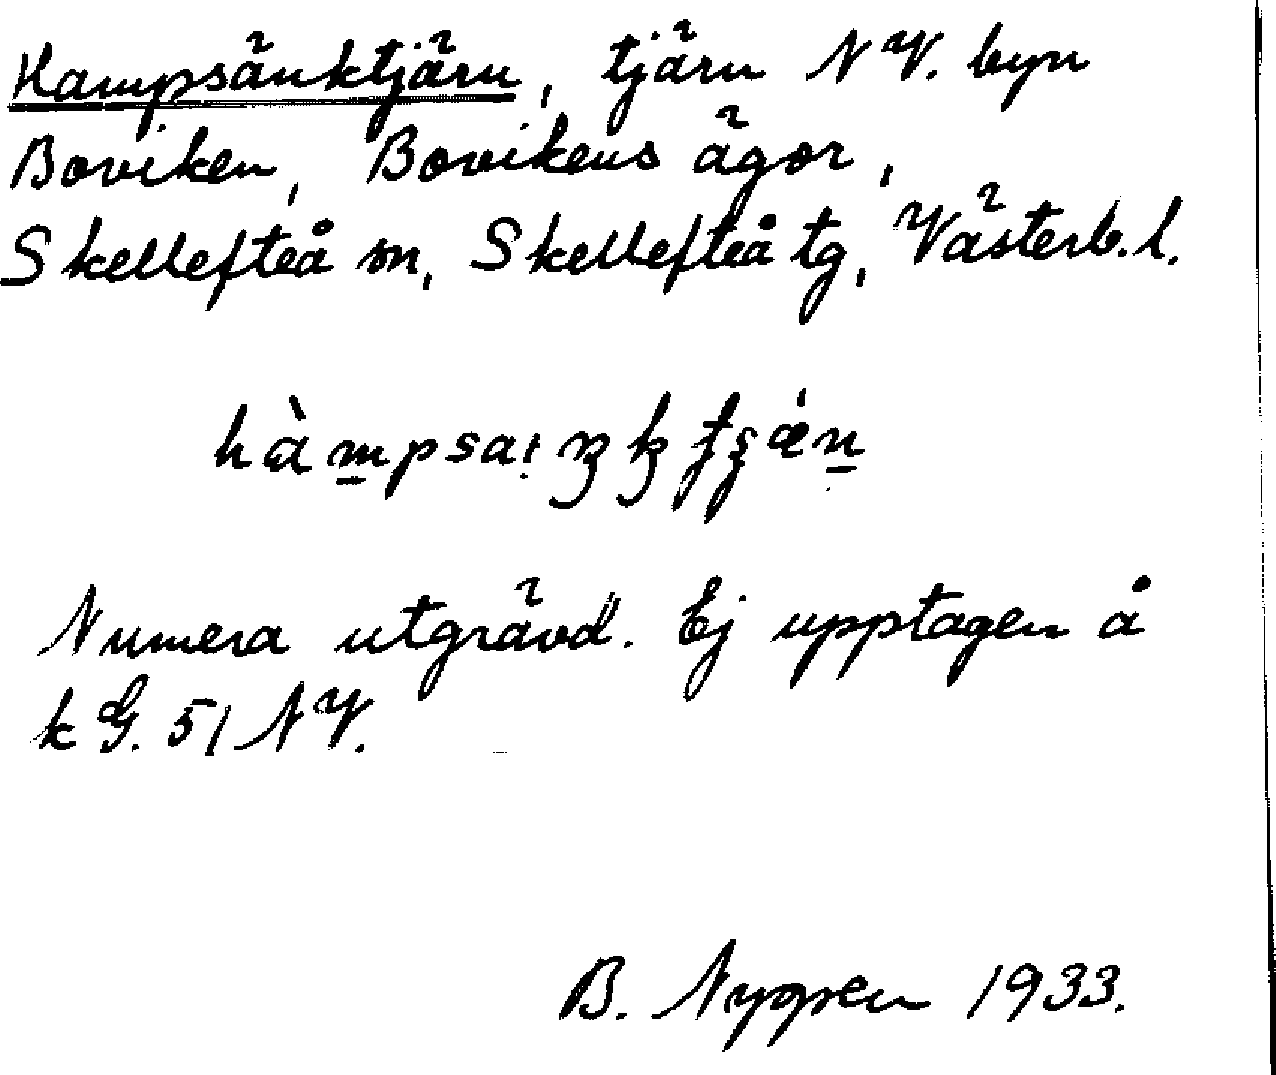 Hampsänktjärn, tjärn NV. byn
Boviken, Bovikens ägor,
Skellefteå sn, Skellefteå tg, Västerb. l.
Numera utgrävd. Ej upptagen å
k G. 51 NV.
B. Nygren 1933.